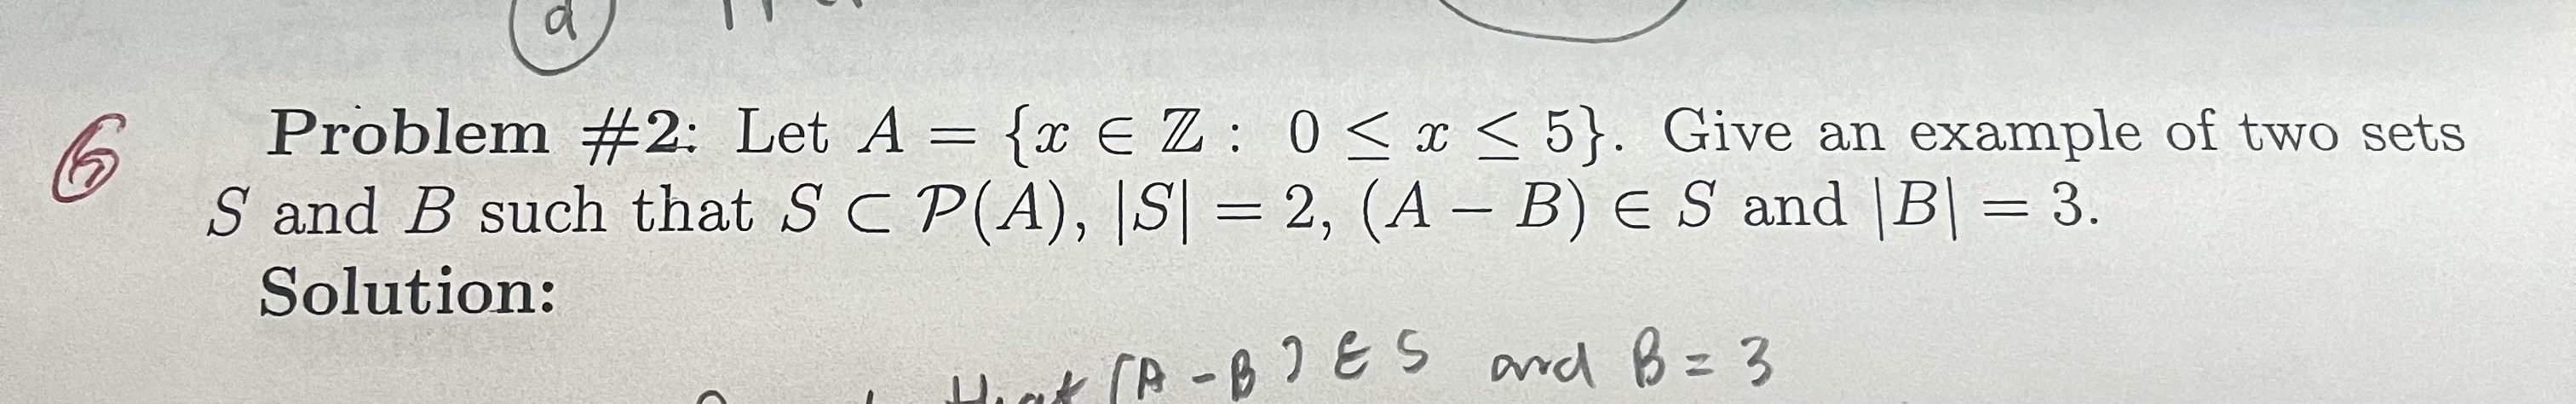 d
6
Problem #2: Let A = {x ∈ ℤ : 0 ≤ x ≤ 5}. Give an example of two sets
S and B such that S ⊂ 𝒫(A), |S| = 2, (A − B) ∈ S and |B| = 3.
Solution:
that (A - B) ∈ S and B = 3